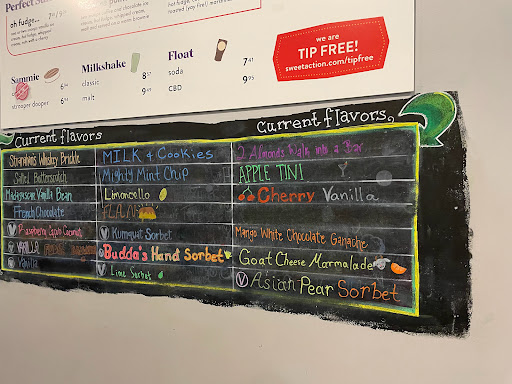 Perfect
oh fudge...
we are
TIP FREE!
sweetaction.com/tipfree
Sammie
classic
6
strooper dooper
6
Milkshake
classic
8
malt
9
Float
soda
7
CBD
9
Current flavors
Current flavors
Stranahan's Whiskey Brickle
Salted Butterscotch
Madagascar Vanilla Bean
French Chocolate
V Raspberry Coconut
V Vanilla
Vanilla
MILK & COOKIES
Mighty Mint Chip
Limoncello
FLAN
V Kumquat Sorbet
V Budda's Hand Sorbet
V Lime Sorbet
2 Almonds Walk into a Bar
APPLE TINI
Cherry Vanilla
Mango White Chocolate Ganache
Goat Cheese Marmalade
V Asian Pear Sorbet